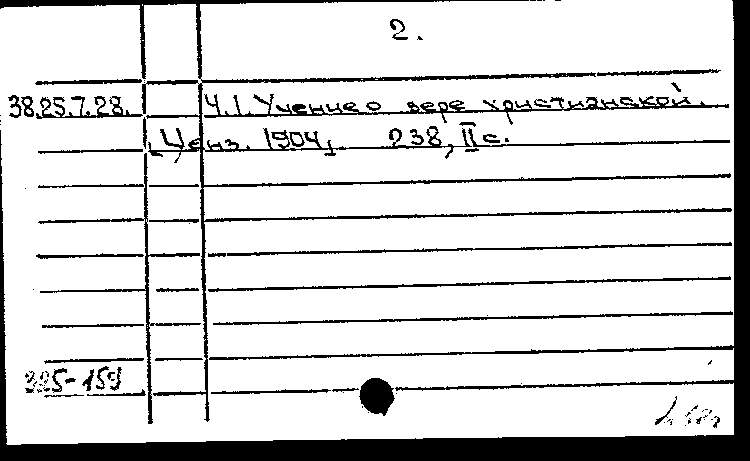 2.
38.25.7.28. Ч.1. Учение о вере христианской.
[Ценз. 1904]. 238, II с.
395-159